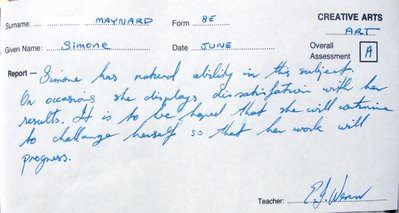 Surname: MAYNARD Form 8E CREATIVE ARTS
ART
Given Name: Simone Date JUNE Overall Assessment A
Report — Simone has natural ability in this subject.
On occasions she displays dissatisfaction with her
results. It is to be hoped that she will continue
to challange herself so that her work will
progress.
Teacher: